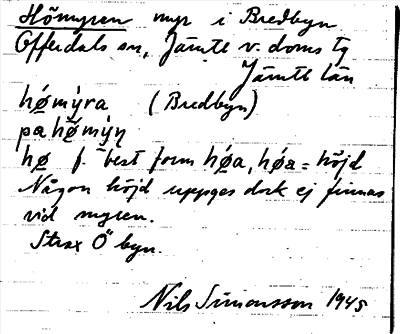 Hömyren myr i Bredbyn
Offerdals sn, Jämtl v. doms tg
Jämtl län
hǿmýra (Bredbyn)
pa hǿmýṇ
hø f. best form hǿa, hǿa = höjd
Någon höjd uppges dock ej finnas
vid myren.
Strax Ö byn.
Nils Simonsson 1945